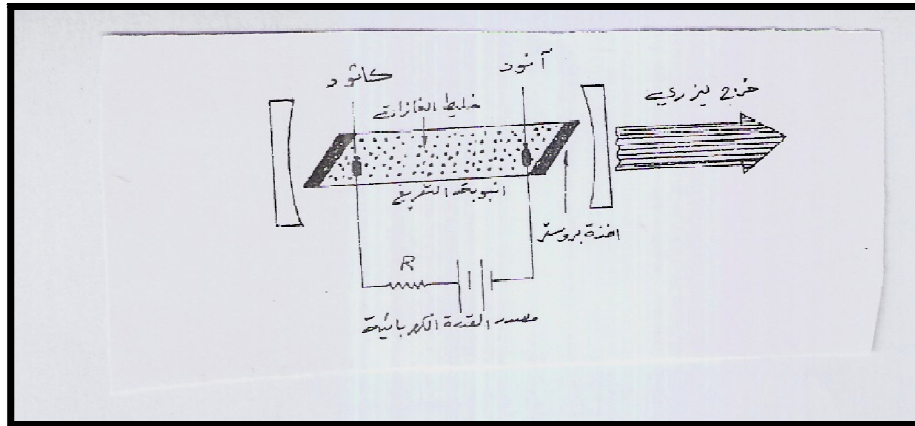 آنود
كاثود
خرج ليزري
خليط الغازات
انبوبة التفريغ
نافذة بروستر
R
مصدر القدرة الكهربائية